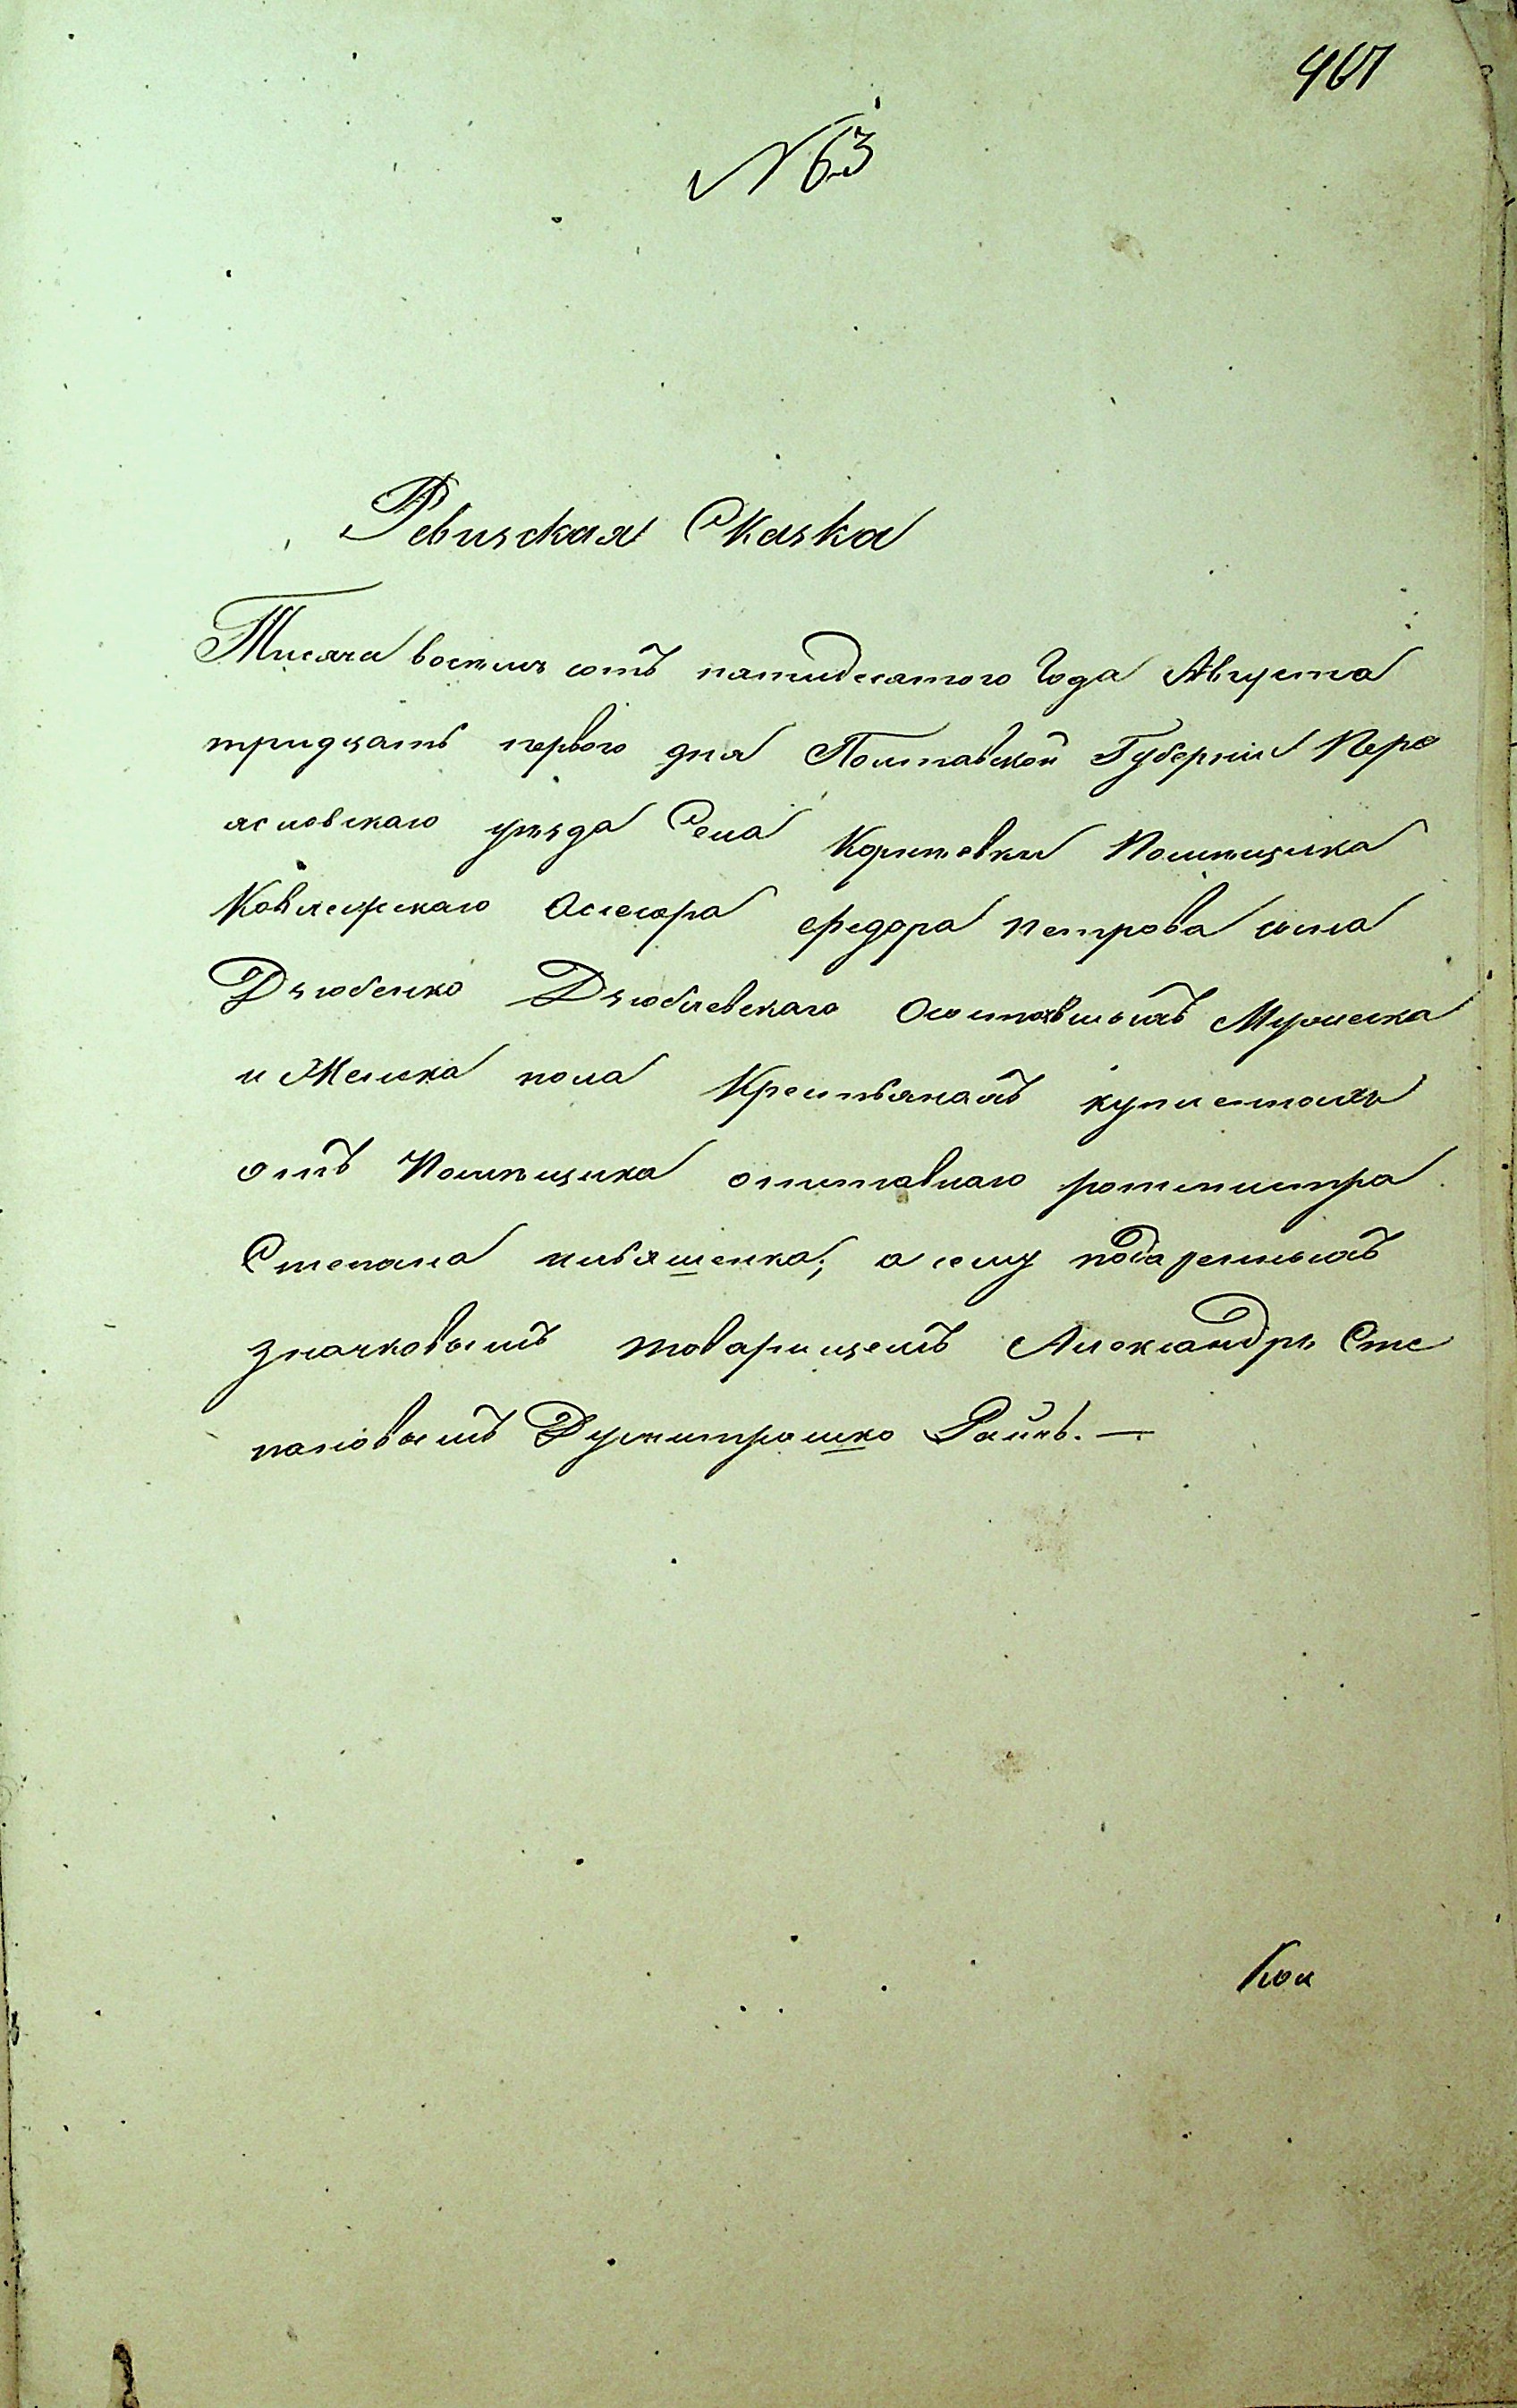 467
N 63
Ревизская Сказка
Тисяча восемъ сотъ пятидесятого Года Августа
тридцать первого дня Полтавской Губернии Пере
ясловскаго уезда Села Коритовки Помещика
Колежскаго Асесора Федора Петрова сына
Дзюбенко Дзюблевскаго Осостоявшыхъ Мужеска
и Женска пола Крестьянахъ купленныхъ
отъ Помещика отставнаго ротмистра
Степана Ильяшенка; а ему подаренныхъ
значковымъ товарищемъ Александръ Сте
пановымъ Думитрашко Райчъ. —